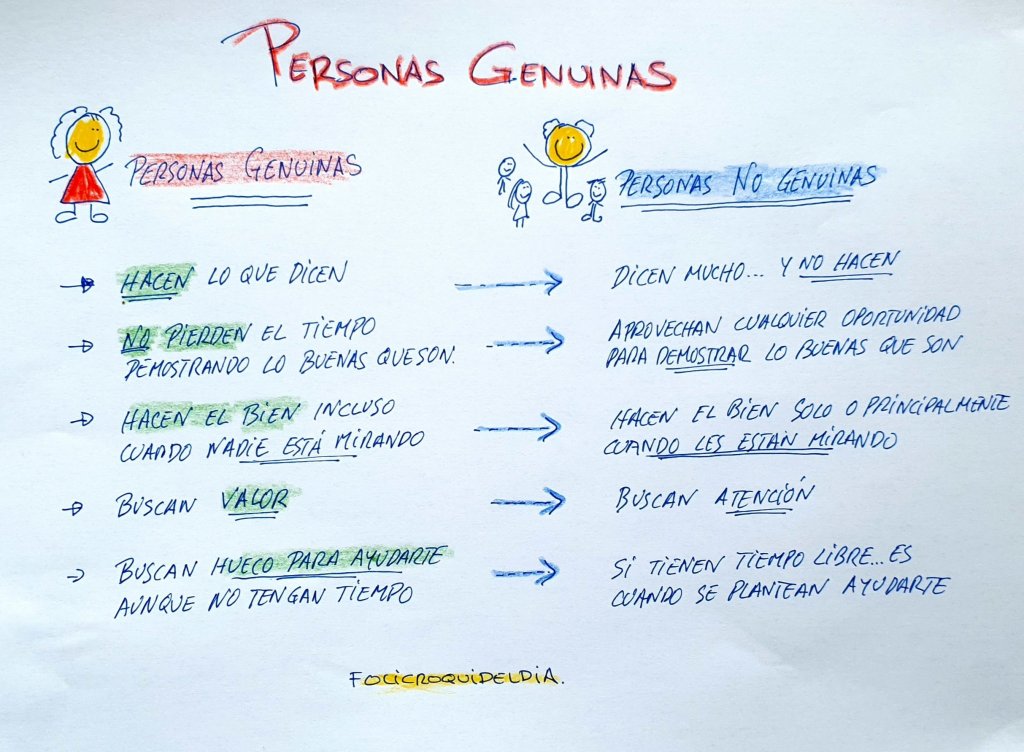 PERSONAS GENUINAS
PERSONAS GENUINAS
PERSONAS NO GENUINAS
HACEN LO QUE DICEN
DICEN MUCHO... Y NO HACEN
NO PIERDEN EL TIEMPO
DEMOSTRANDO LO BUENAS QUE SON.
APROVECHAN CUALQUIER OPORTUNIDAD
PARA DEMOSTRAR LO BUENAS QUE SON
HACEN EL BIEN INCLUSO
CUANDO NADIE ESTÁ MIRANDO
HACEN EL BIEN SOLO O PRINCIPALMENTE
CUANDO LES ESTÁN MIRANDO
BUSCAN VALOR
BUSCAN ATENCIÓN
BUSCAN HUECO PARA AYUDARTE
AUNQUE NO TENGAN TIEMPO
SI TIENEN TIEMPO LIBRE... ES
CUANDO SE PLANTEAN AYUDARTE
FOLICROQUIDELDIA.